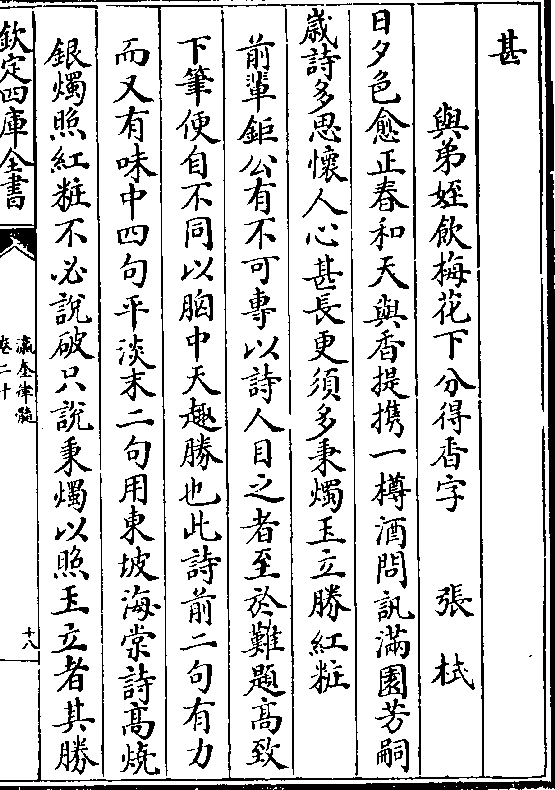 甚
與弟姪飲梅花下分得香字　張栻
日夕色愈正春和天與香提携一樽酒問訊滿園芳嗣
歳詩多思懷人心甚長更須多秉燭玉立勝紅粧
前輩鉅公有不可專以詩人目之者至於難題髙致
下筆便自不同以胸中天趣勝也此詩前二句有力
而又有味中四句平淡末二句用東坡海棠詩髙燒
銀燭照紅粧不必説破只説秉燭以照玉立者其勝
欽定四庫全書
瀛奎律髓
卷二十
十八